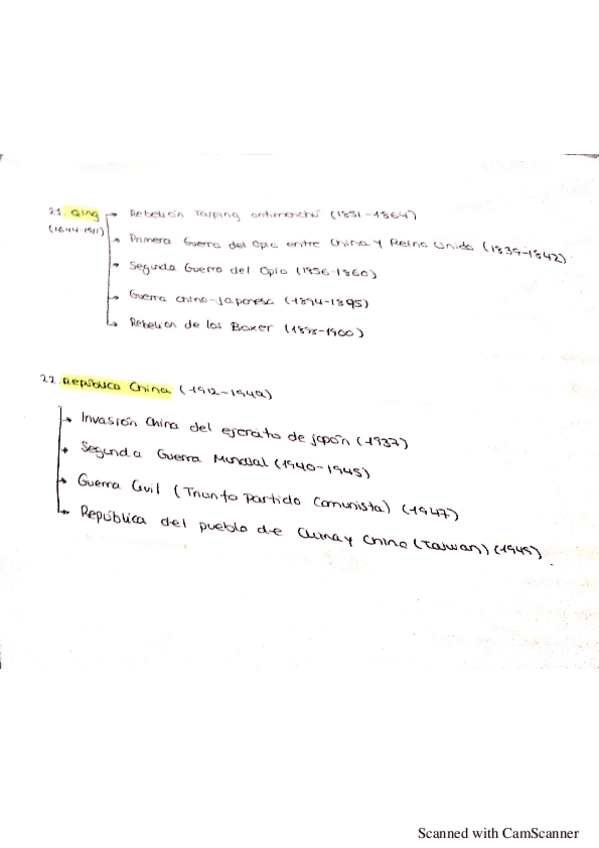 21. Qing → Rebelión Taiping antimanchú (1851-1864)
(1644-1911)
→ Primera Guerra del Opio entre China y Reino Unido (1839-1842).
→ Segunda Guerra del Opio (1856-1860)
→ Guerra chino-japonesa (1894-1895)
→ Rebelion de los Boxer (1898-1900)
22. República China (1912-1949)
→ Invasión China del ejercito de japón (1937)
→ Segunda Guerra Mundial (1940-1945)
→ Guerra Civil (Triunfo Partido Comunista) (1947)
→ República del pueblo de China y China (Taiwan) (1949).
Scanned with CamScanner